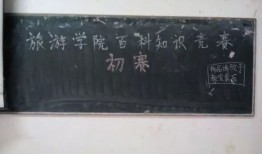 旅游学院百科知识竞赛
初赛